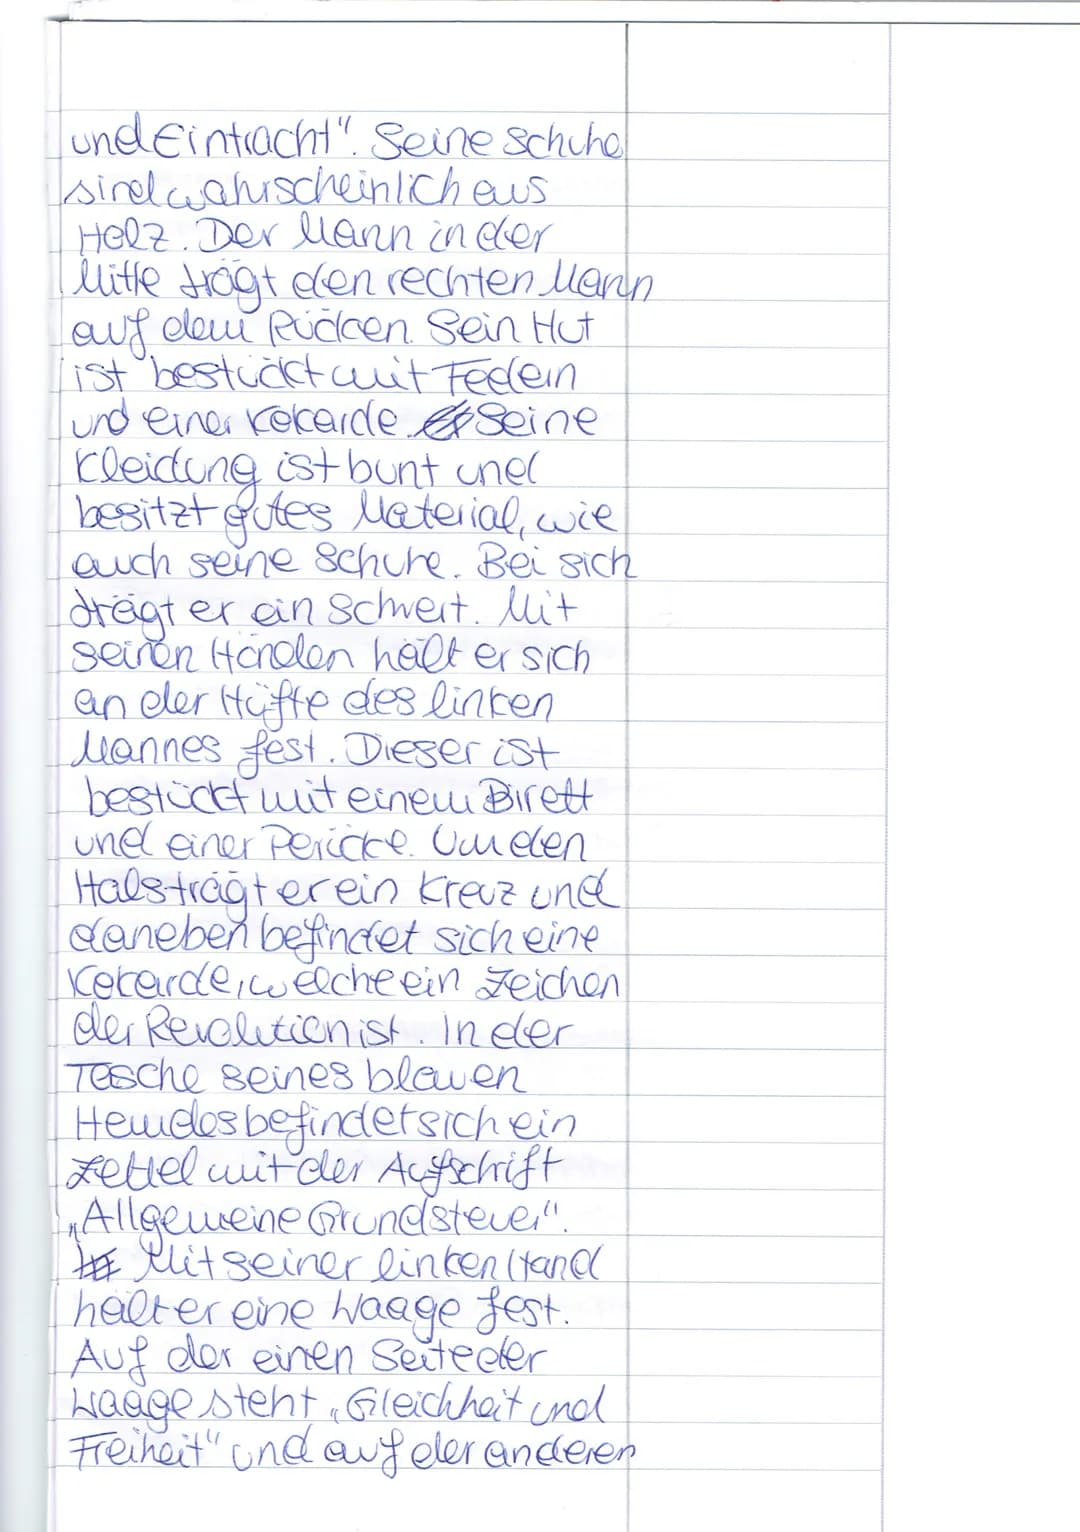 und Eintracht". Seine Schuhe
sind wahrscheinlich aus
Holz. Der Mann in der
Mitte trägt den rechten Mann
auf dem Rücken. Sein Hut
ist bestückt mit Federn
und einer Kokarde. Seine
Kleidung ist bunt und
besitzt gutes Material, wie
auch seine Schuhe. Bei sich
trägt er ein Schwert. Mit
seinen Händen hält er sich
an der Hüfte des linken
Mannes fest. Dieser ist
bestückt mit einem Birett
und einer Perücke. Um den
Hals trägt er ein Kreuz und
daneben befindet sich eine
Kokarde, welche ein Zeichen
der Revolution ist. In der
Tasche seines blauen
Hemdes befindet sich ein
Zettel mit der Aufschrift
„Allgemeine Grundsteuer".
Mit seiner linken Hand
hält er eine Waage fest.
Auf der einen Seite der
Waage steht „Gleichheit und
Freiheit" und auf der anderen